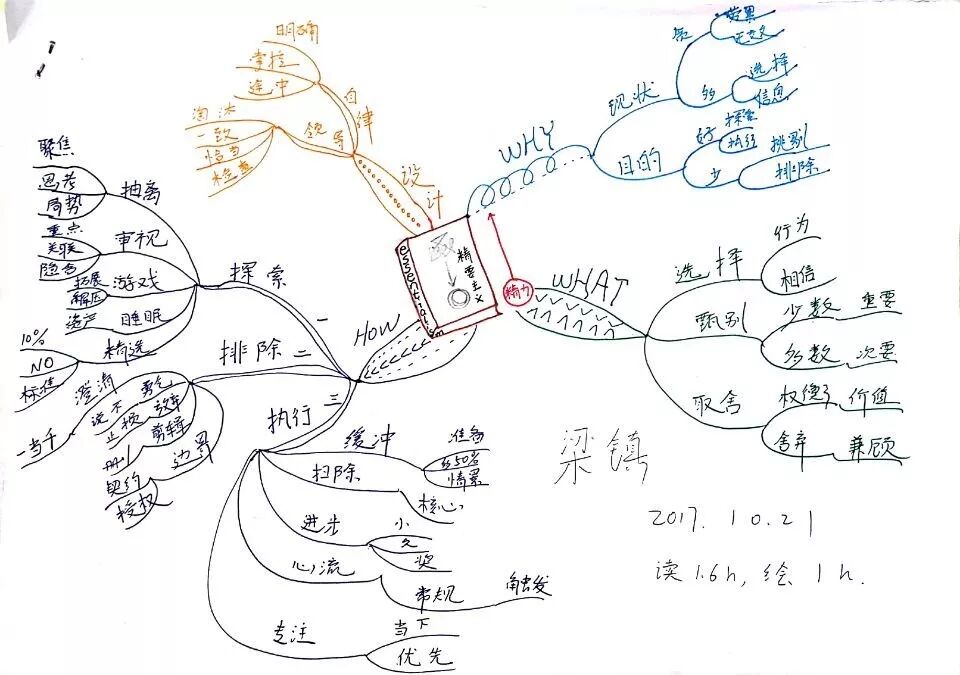 essentialism
精要主义
精力
设计
自律
明确
掌控
途中
领导
淘汰
一致
恰当
检查
WHY
现状
黄黑
无意义
多
选择
信息
目的
好
探索
执行
少
挑剔
排除
WHAT
选择
行为
相信
甄别
少数
重要
多数
次要
取舍
权衡
价值
舍弃
兼顾
HOW
一
探索
抽离
聚焦
思考
审视
局势
重点
关联
游戏
隐色
拓展
解压
睡眠
资产
精选
10%
NO
标准
二
排除
澄清
一当千
说不
勇气
止损
放弃
剪辑
边界
契约
授权
三
执行
缓冲
准备
50%
情景
扫除
核心
进步
小
久
奖
心流
常规
触发
专注
当下
优先
梁镇
2017.10.21
读1.6h,绘1h.